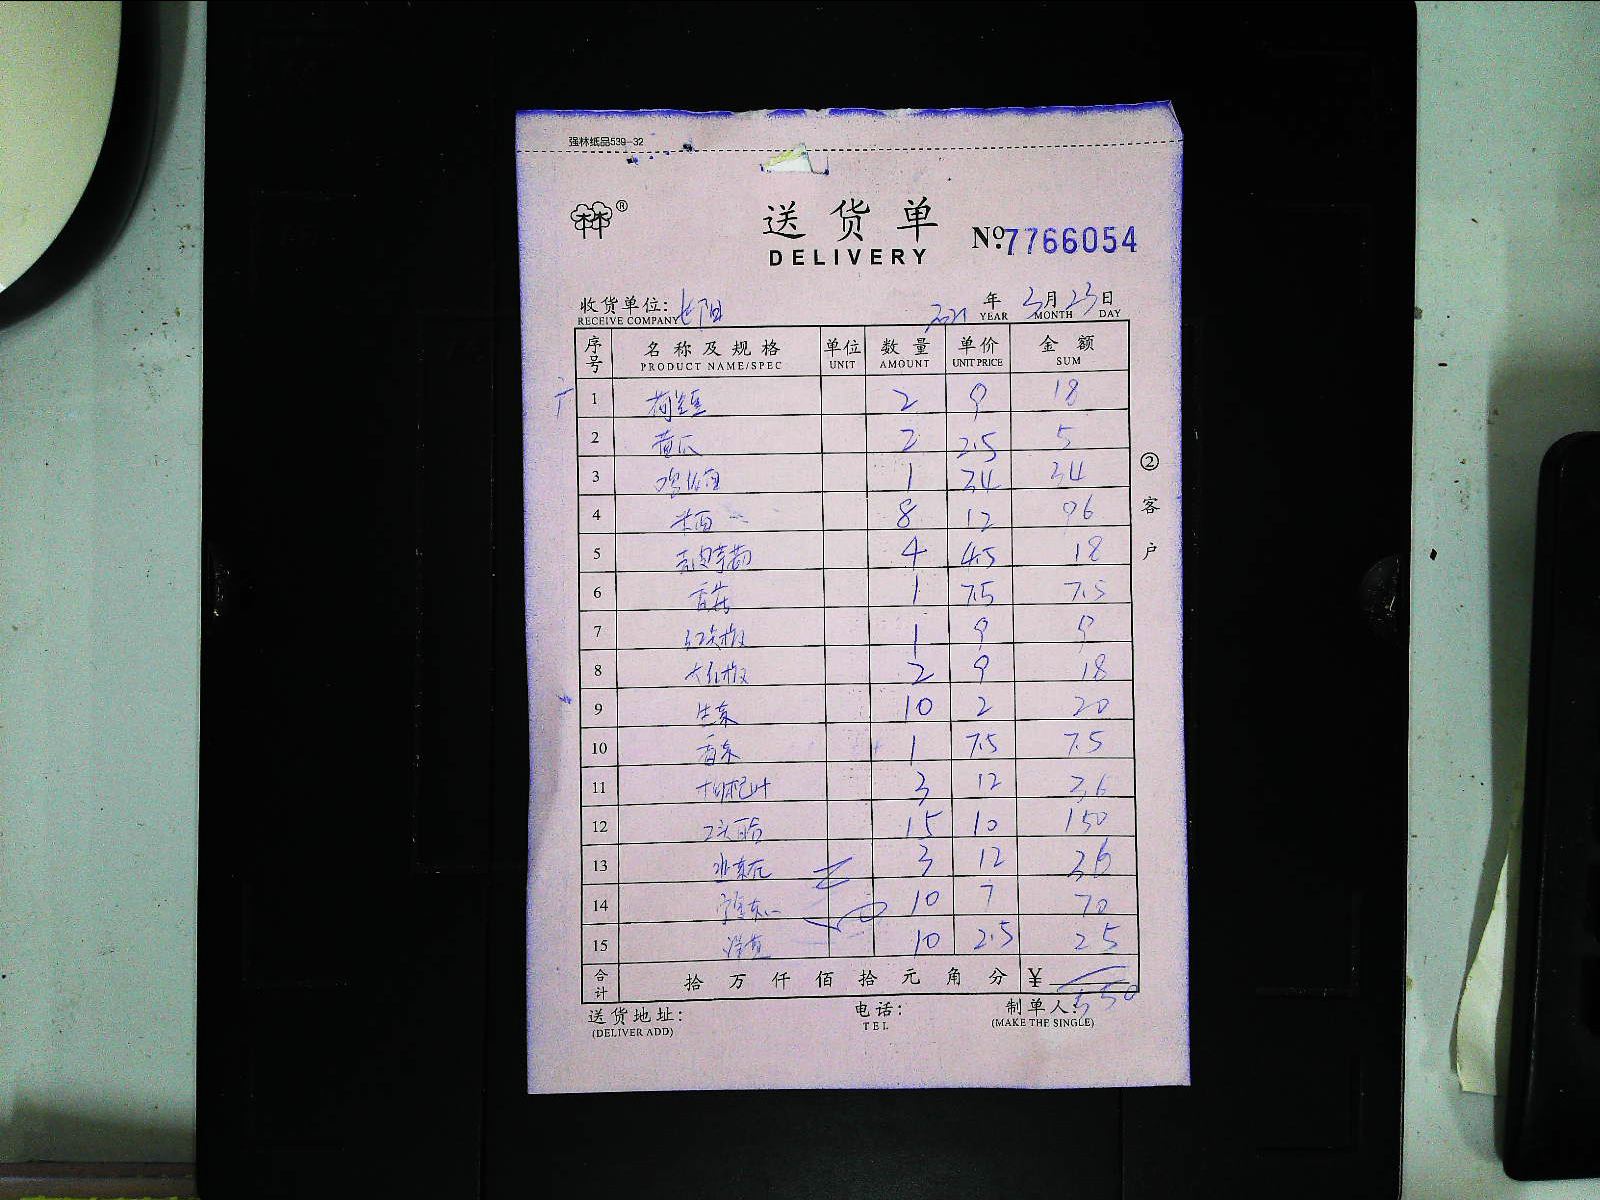 强林纸品539-32
林林®
送货单
DELIVERY
№:7766054
收货单位: 七阳 2021年3月23日
RECEIVE COMPANY YEAR MONTH DAY
序号 名称及规格 单位 数量 单价 金额
PRODUCT NAME/SPEC UNIT AMOUNT UNIT PRICE SUM
1 荷兰豆 2 9 18
2 黄瓜 2 2.5 5
3 1 34 34
4 8 12 96
5 4 4.5 18
6 香菇 1 7.5 7.5
7 红尖椒 1 9 9
8 2 9 18
9 生菜 10 2 20
10 香菜 1 7.5 7.5
11 枸杞叶 3 12 36
12 15 10 150
13 3 12 36
14 10 7 70
15 10 2.5 25
合计 拾万仟佰拾元角分 ¥ 550
送货地址: 电话: 制单人:
(DELIVER ADD) TEL (MAKE THE SINGLE)
②客户